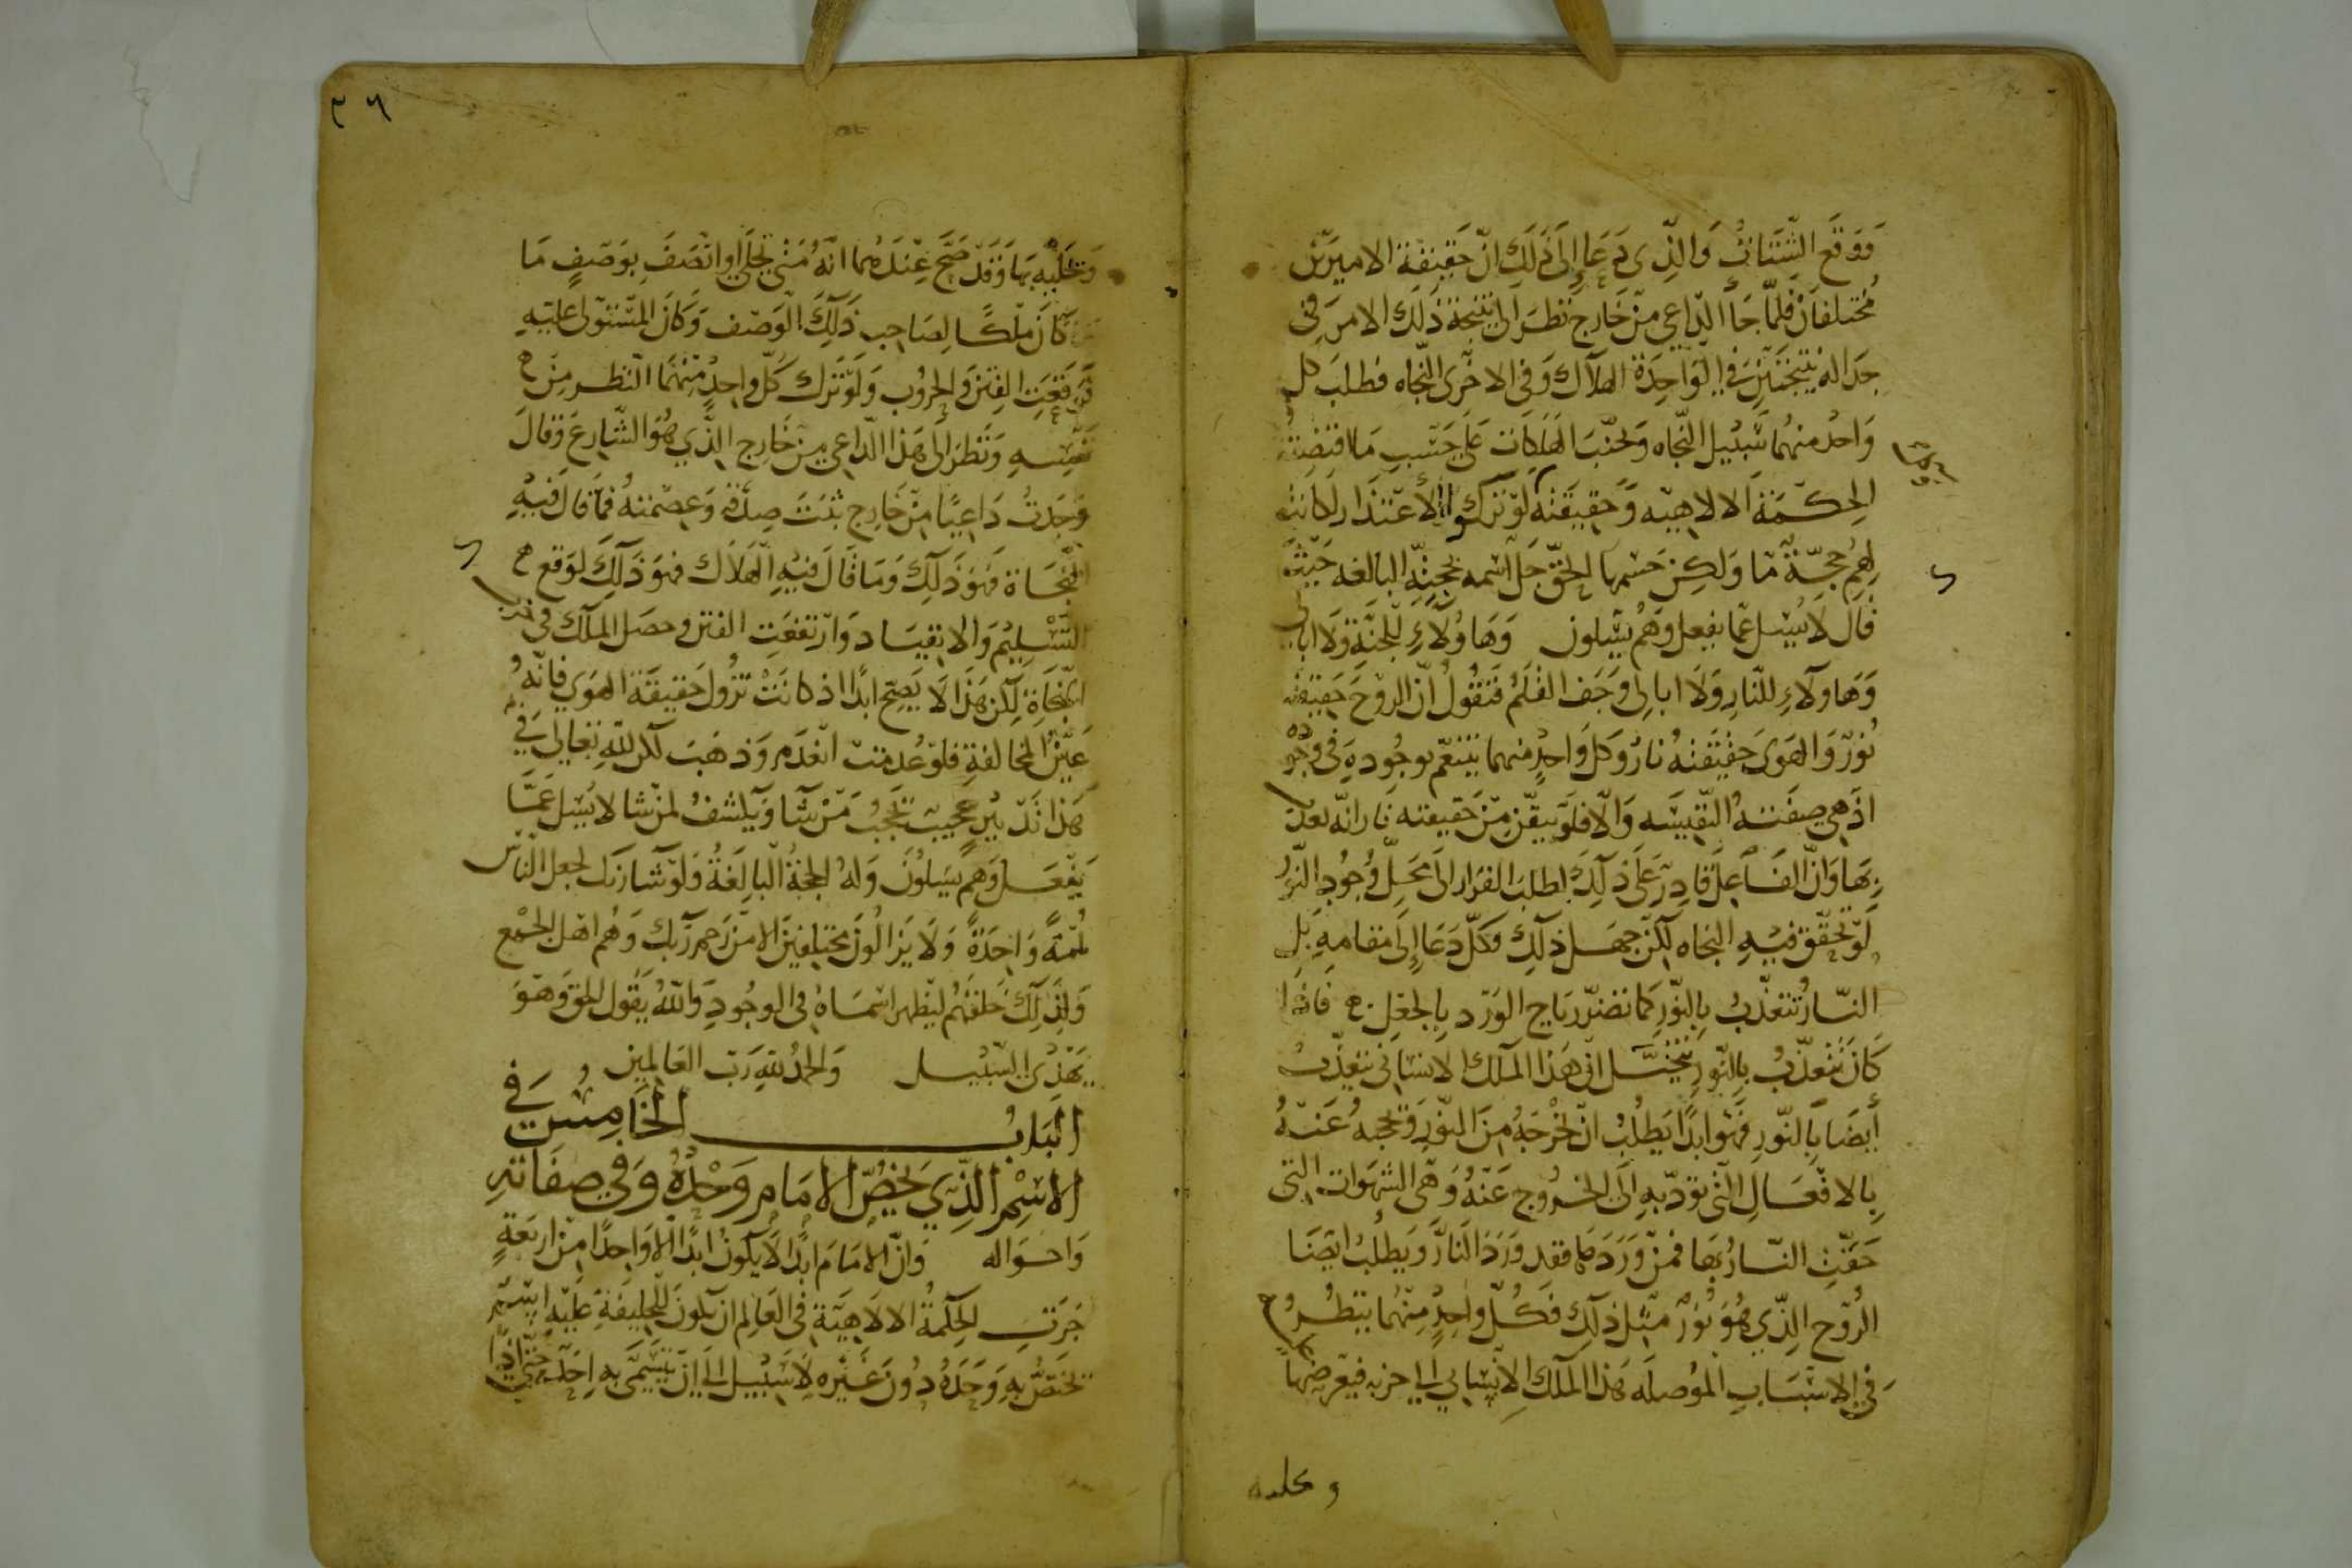 فوقع الشتات والذي دعا إلى ذلك ان حقيقة الاميرين
مختلفان فلما جا الداعي من خارج نظرا الى نتيجة ذلك الامر في
نتيجتين في الواحدة الهلاك وفي الاخرى النجاه فطلب كل
واحد منهما سبيل النجاه وتجنب الهلكات على حسب ما اقتضته
الحكمة الالاهيه وحقيقته لو تركوا الأعتذار لكانت
لهم حجة ما ولكن حسمها الحق جل اسمه بحجته البالغه حيث
قال لا يسل عما يفعل وهم يسلون وهاولاء للجنة ولا ابالي
وهاولاء للنار ولا ابالي وجف القلم فنقول ان الروح حقيقته
نور والهوى حقيقته نار وكل واحد منهما يتنعم بوجوده في وجوده
اذ هي صفته النفيسه والا فلو تيقن من حقيقته نار انه يعذب
بها وان الفاعل قادر على ذلك لطلب الفرار الى محل وجود النور
لو تحقق فيه النجاه لكن جهل ذلك وكل دعا إلى مقامه بل
النار تتعذب بالنور كما تضر رياح الورد بالجعل فاذا
كان تتعذب بالنور تتخيل ان هذا الملك الانساني يتعذب
أيضا بالنور فهو ابدا يطلب ان يخرجه من النور ويحجبه عنه
بالافعال التي توديه إلى الخروج عنه وهي الشهوات التي
حفت النار بها فمن وردها فقد ورد النار ويطلب ايضا
الروح الذي هو نور مثل ذلك فكل واحد منهما ينظر
في الاسباب الموصله هذا الملك الانساني الى حزبه فيعرضها
وتحليه
٣٦
وتحليه بها وقد صح عندهما انه متى تحلى او اتصف بوصف ما
كان ملكا لصاحب ذلك الوصف وكان المستولي عليه
فوقعت الفتن والحروب ولو ترك كل واحد منهما النظر من
نفسه ونظر الى هذا الداعي من خارج الذي هو الشارع وقال
وجدت داعيا من خارج ثبت صدقه وعصمته فما قال فيه
النجاة فهو ذلك وما قال فيه الهلاك فهو ذلك لوقع
التسليم والانقياد وارتفعت الفتن وحصل الملك في
النجاة لكن هذا لا يصح ابدا اذ كانت تزول حقيقة الهوى فانه
عين المخالفة فلو عدمت انعدم وذهب لكن لله تعالى في
هذا تدبير عجيب يحجب من شا ويكشف لمن شا لا يسل عما
يفعل وهم يسلون وله الحجة البالغة ولو شا ربك لجعل الناس
أمة واحدة ولا يزالون مختلفين الا من رحم ربك وهم اهل الجمع
ولذلك خلقهم ليظهر اسماه في الوجود والله يقول الحق وهو
يهدي السبيل والحمد لله رب العالمين
الباب الخامس في
الاسم الذي يخص الامام وحده وفي صفاته
واحواله وان الامام ابدا لا يكون ابدا الا واحدا من اربعة
جرت الحكمة الالاهية في العالم ان يكون للخليفة عليه اسم
تختص به وحده دون غيره لا سبيل الى ان يتسمى به احد حتى اذا